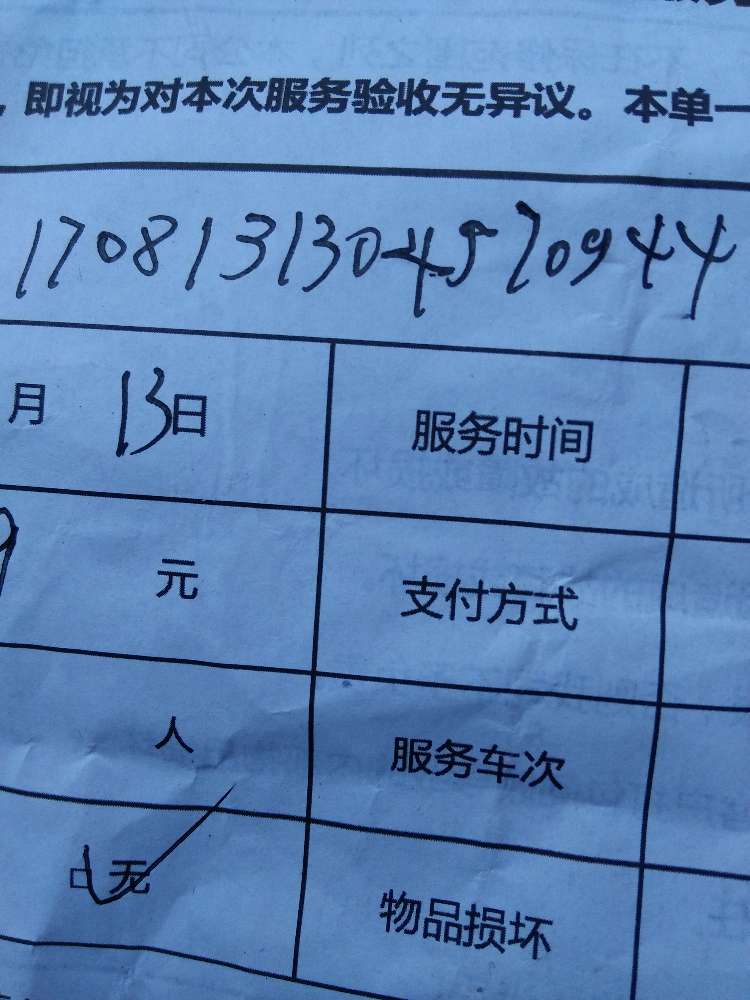 ，即视为对本次服务验收无异议。本单一
1708131304570944
月 13日 服务时间
元 支付方式
人 服务车次
□无 物品损坏